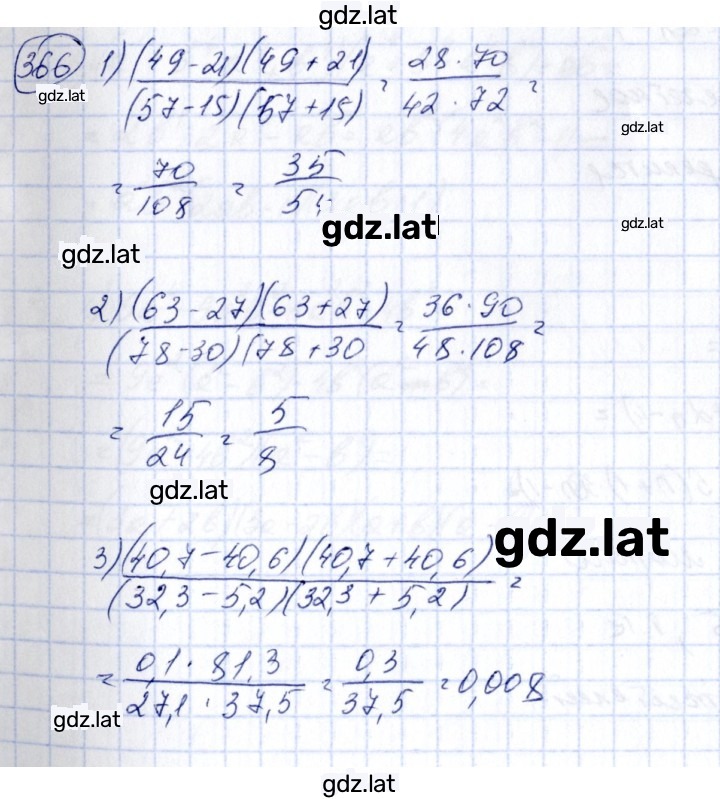 gdz.lat
366 1) (49-21)(49+21) / (57-15)(57+15) = 28·70 / 42·72 =
gdz.lat
gdz.lat
= 70/108 = 35/54
gdz.lat
gdz.lat
gdz.lat
2) (63-27)(63+27) / (78-30)(78+30 = 36·90 / 48·108 =
= 15/24 = 5/8
gdz.lat
gdz.lat
3) (40,7-40,6)(40,7+40,6) / (32,3-5,2)(32,3+5,2) =
= 0,1·81,3 / 27,1·37,5 = 0,3/37,5 = 0,008
gdz.lat
gdz.lat